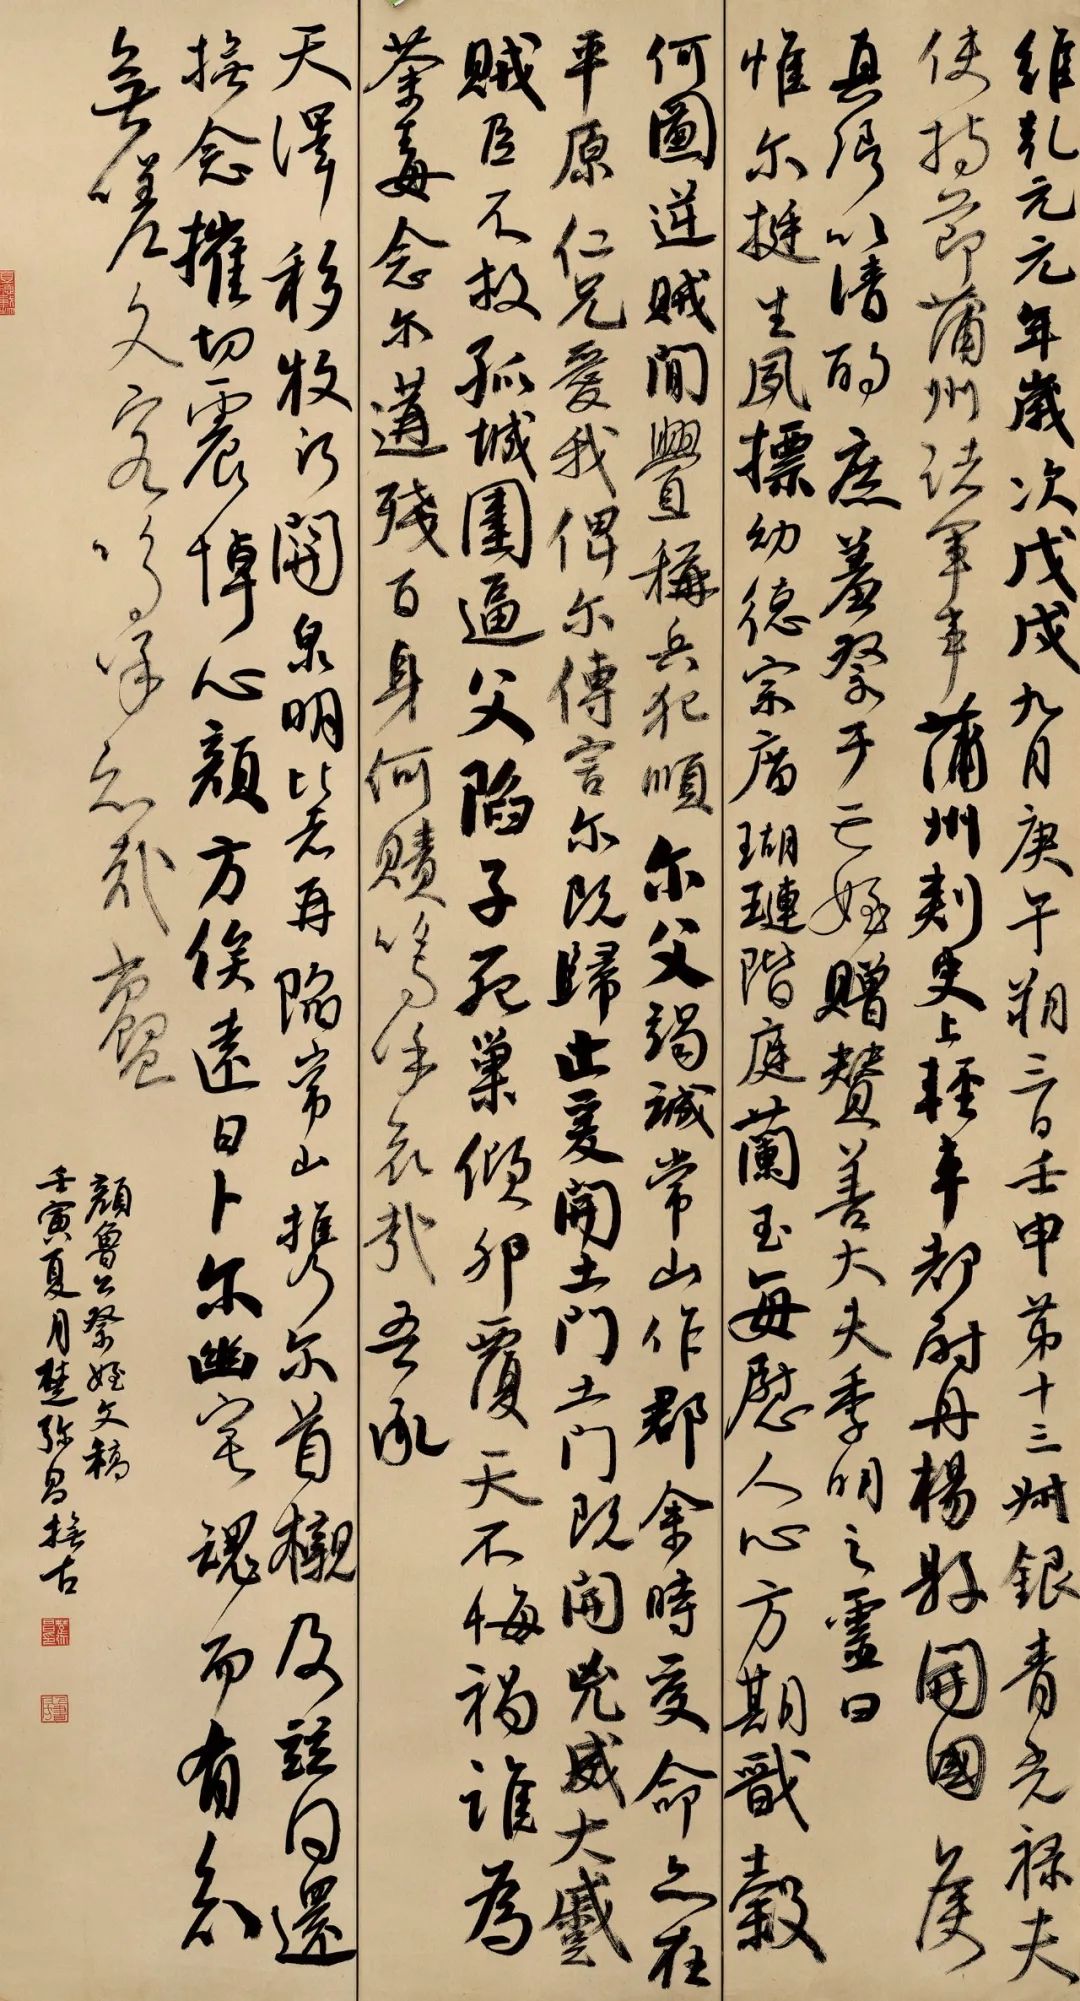 維乾元元年歲次戊戌九月庚午朔三日壬申第十三叔銀青光祿夫
使持節蒲州諸軍事蒲州刺史上輕車都尉丹楊縣開國侯
真卿以清酌庶羞祭于亡姪贈贊善大夫季明之靈曰
惟尔挺生夙摽幼德宗廟瑚璉階庭蘭玉每慰人心方期戩穀
何圖逆賊閒釁稱兵犯順尔父竭誠常山作郡余時受命亦在
平原仁兄愛我俾尔傳言尔既歸止爰開土門土門既開兇威大蹙
賊臣不救孤城圍逼父陷子死巢傾卵覆天不悔禍誰為
荼毒念尔遘殘百身何贖嗚呼哀哉吾承
天澤移牧河關泉明比者再陷常山攜尔首櫬及茲同還
撫念摧切震悼心顏方俟遠日卜尔幽宅魂而有知
無嗟久客嗚呼哀哉尚饗
顏魯公祭姪文稿
壬寅夏月楚弥昌撫古